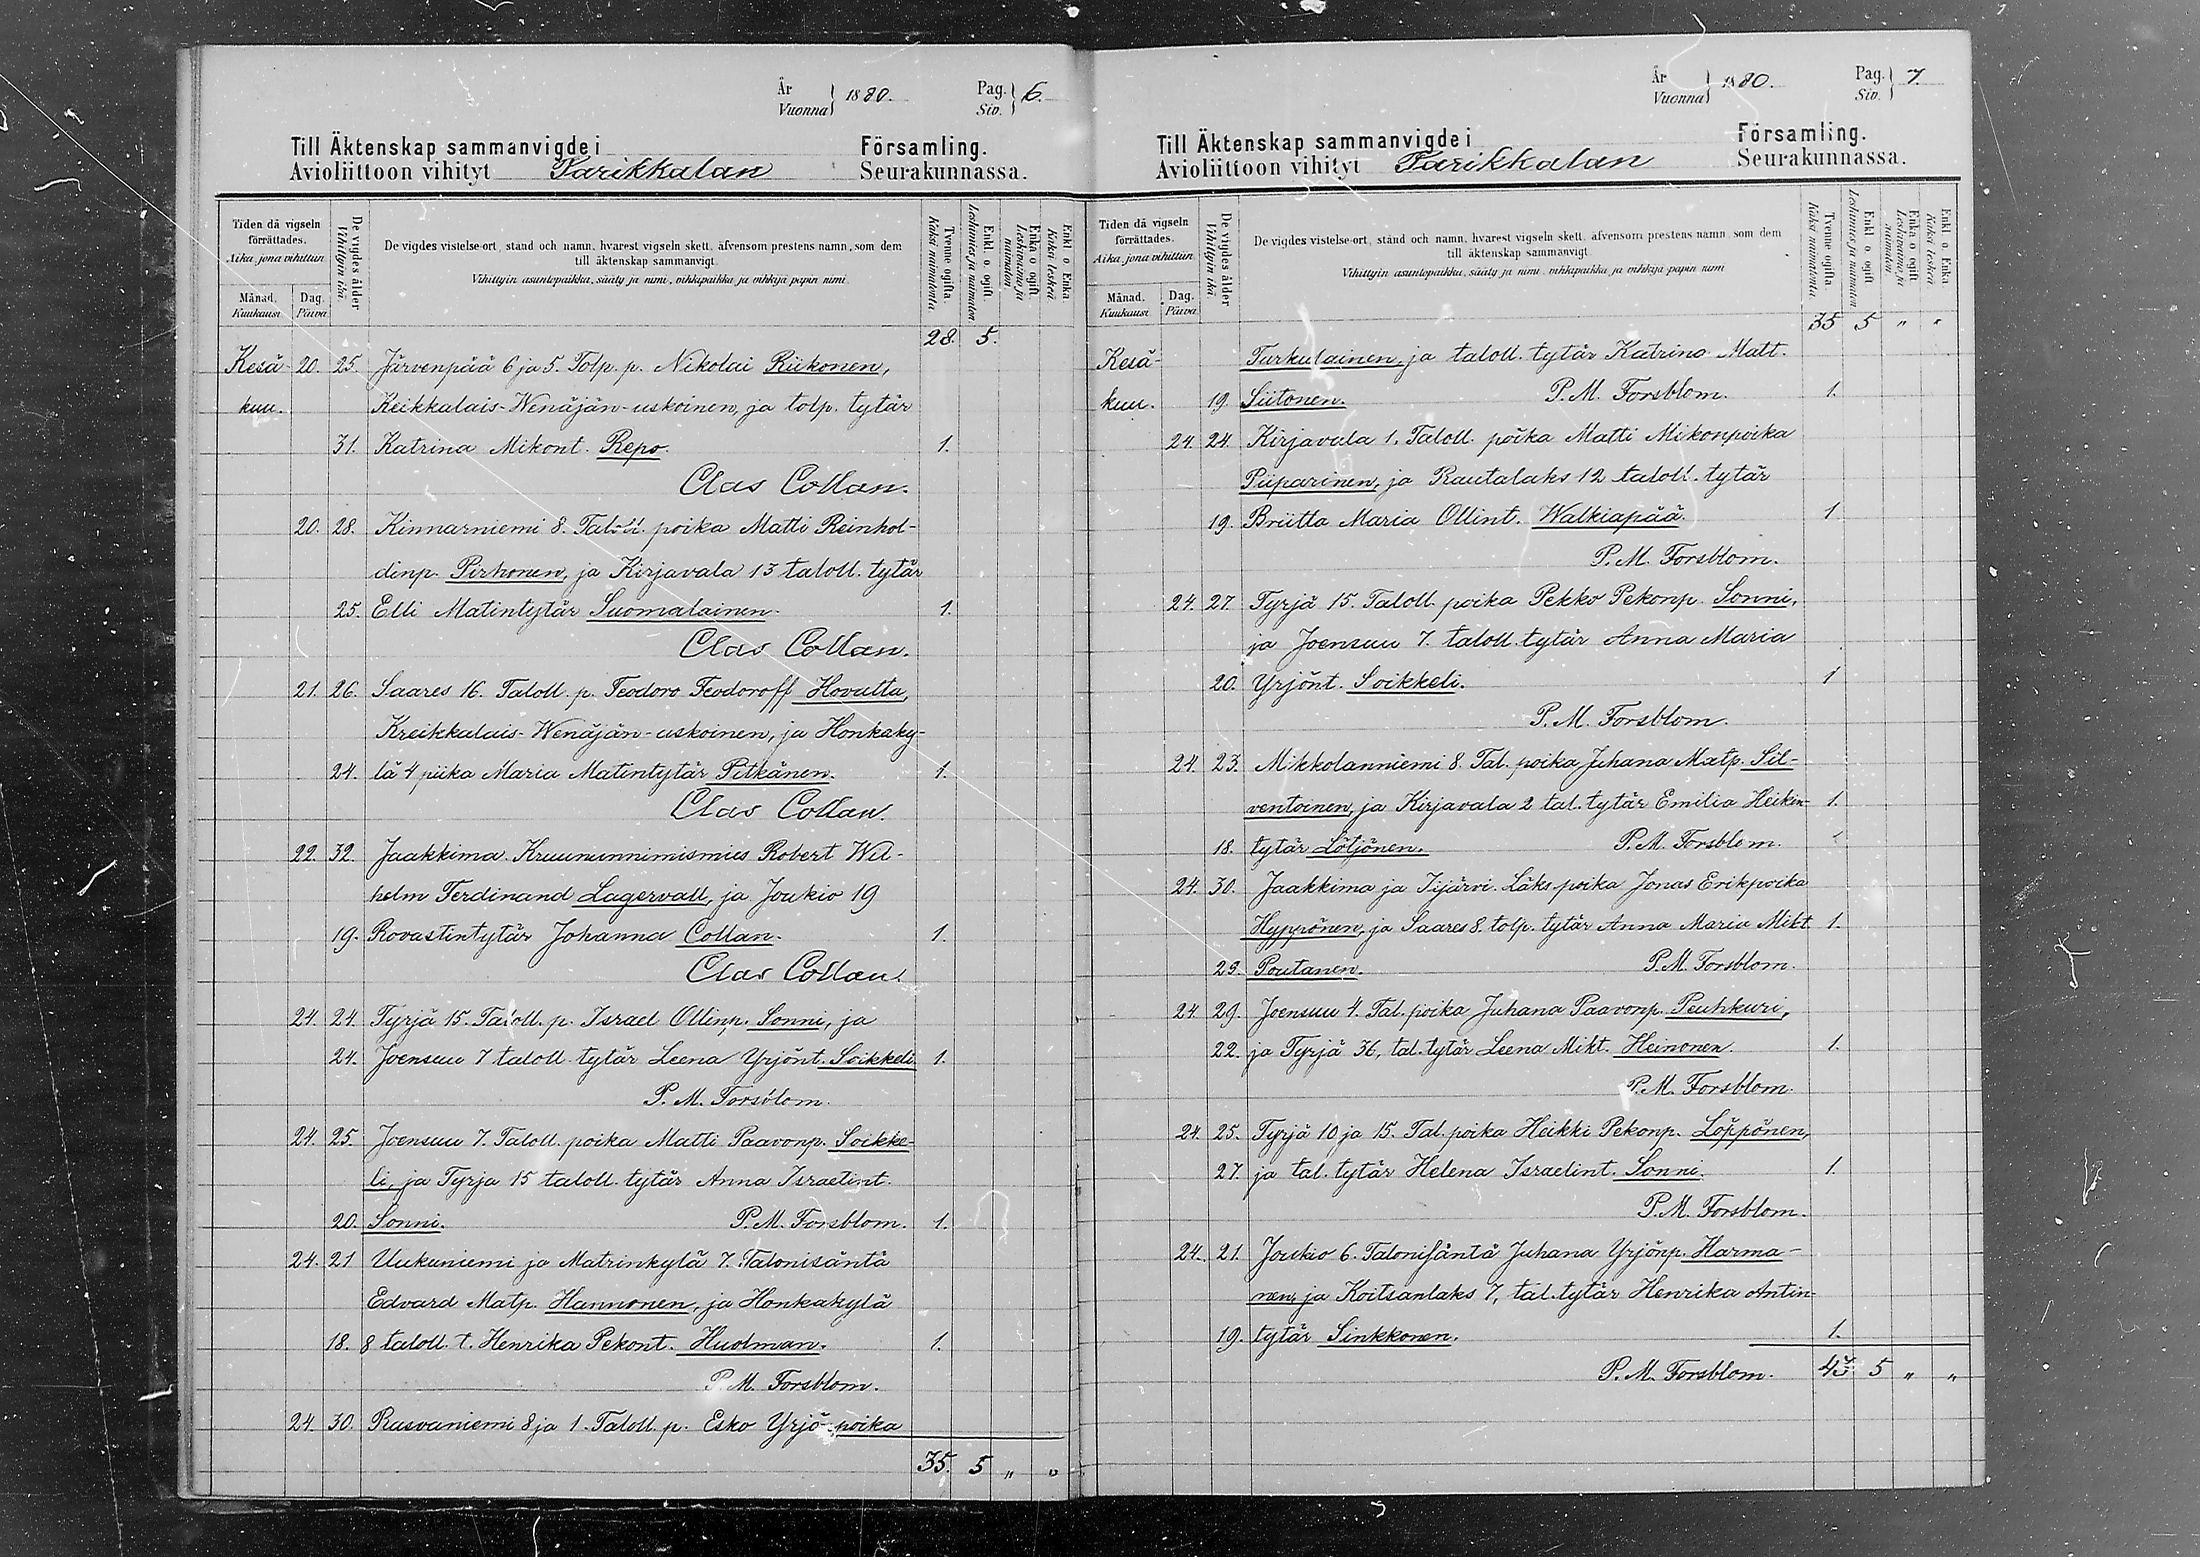 År Vuonna } 1880. Pag. Siv. } 6.
Till Äktenskap sammanvigde i Församling.
Avioliittoon vihityt Parikkalan Seurakunnassa.
Tiden då vigseln förrättades. Aika, jona vihittiin
Månad. Kuukausi
Dag. Päivä
De vigdes ålder Vihittyin ikä
De vigdes vistelse-ort, stånd och namn, hvarest vigseln skett, äfvensom prestens namn, som dem
till äktenskap sammanvigt.
Vihittyin asuntopaikka, sääty ja nimi, vihkipaikka ja vihkijä papin nimi
Tvenne ogifta. Kaksi naimatonta
Enkl. o. ogift. Leskimies ja naimaton
Enka o ogift Leskivaimo ja naimaton
Enkl o. Enka Kaksi leskeä
28. 5.
Kesä- 20. 25. Järvenpää 6 ja 5. Tolp. p. Nikolai Riikonen,
kuu. Keikkalais-Wenäjän-uskoinen, ja tolp. tytär
31. Katrina Mikont. Repo. 1.
Clas Collan.
20. 28. Kinnarniemi 8. Taloll. poika Matti Reinhol-
dinp. Pirhonen, ja Kirjavala 13 taloll. tytär
25. Elli Matintytär Suomalainen. 1.
Clas Collan.
21. 26. Saares 16. Taloll. p. Teodoro Feodoroff Hovatta,
Kreikkalais-Wenäjän-uskoinen, ja Honkaky-
24. lä 4 piika Maria Matintytär Pitkänen. 1.
Clas Collan.
22. 32. Jaakkima Kruununnimismies Robert Wil-
helm Ferdinand Lagervall, ja Joukio 19
19. Rovastintytär Johanna Collan. 1.
Clas Collan.
24. 24. Tyrjä 15. Taloll. p. Israel Ollinp. Sonni, ja
24. Joensuu 7 taloll. tytär Leena Yrjönt. Soikkeli 1.
P. M. Forsblom.
24. 25. Joensuu 7. Taloll. poika Matti Paavonp. Soikke-
li, ja Tyrja 15 taloll. tytär Anna Israelint.
20. Sonni. P. M. Forsblom. 1.
24. 21 Uukuniemi ja Matrinkylä 7. Talonisäntä
Edvard Matp. Hannonen, ja Honkakylä
18. 8 taloll. t. Henrika Pekont. Huolman. 1.
P. M. Forsblom.
24. 30. Rasvaniemi 8 ja 1. Taloll. p. Esko Yrjö- poika
35. 5 " "
År Vuonna } 1880. Pag. Siv. } 7.
Till Äktenskap sammanvigde i Församling.
Avioliittoon vihityt Parikkalan Seurakunnassa.
Tiden då vigseln förrättades. Aika, jona vihittiin
Månad. Kuukausi
Dag. Päivä
De vigdes ålder Vihittyin ikä
De vigdes vistelse-ort, stånd och namn, hvarest vigseln skett, äfvensom prestens namn, som dem
till äktenskap sammanvigt
Vihittyin asuntopaikka, sääty ja nimi, vihkipaikka ja vihkijä papin nimi
Tvenne ogifta. Kaksi naimatonta
Enkl. o. ogift Leskimies ja naimaton
Enka o ogift Leskivaimo ja naimaton.
Enkl o. Enka Kaksi leskeä
35 5 " "
Kesä- Turkulainen, ja taloll. tytär Katrina Matt.
kuu. 19. Siitonen. P. M. Forsblom. 1.
24. 24. Kirjavala 1. Taloll. poika Matti Mikonpoika
Piiparinen, ja Rautalaks 12 taloll. tytär
19. Briitta Maria Ollint. Walkiapää. 1
P. M. Forsblom.
24. 27. Tyrjä 15. Taloll. poika Pekko Pekonp. Sonni,
ja Joensuu 7. taloll. tytär Anna Maria
20. Yrjönt. Soikkeli. 1
P. M. Forsblom.
24. 23. Mikkolanniemi 8. Tal. poika Juhana Matp. Sil-
ventoinen, ja Kirjavala 2 tal. tytär Emilia Heikin- 1.
18. tytär Lötjönen. P. M. Forsblom.
24. 30. Jaakkima ja Iijärvi. Läks. poika Jonas Erikpoika
Hyppönen, ja Saares 8. tolp. tytär Anna Maria Mikt 1.
23. Poutanen. P. M. Forsblom.
24 29. Joensuu 4. Tal. poika Juhana Paavonp. Peuhkuri,
22. ja Tyrjä 36, tal. tytär Leena Mikt. Heinonen. 1.
P. M. Forsblom.
24. 25. Tyrjä 10 ja 15. Tal. poika Heikki Pekonp. Löppönen,
27. ja tal. tytär Helena Israelint. Sonni. 1.
P. M. Forsblom.
24. 21. Joukio 6. Talonisäntä Juhana Yrjönp. Harma-
nen, ja Koitsanlaks 7, tal. tytär Henrika Antin-
19. tytär Sinkkonen. 1.
P. M. Forsblom. 45 5 " "